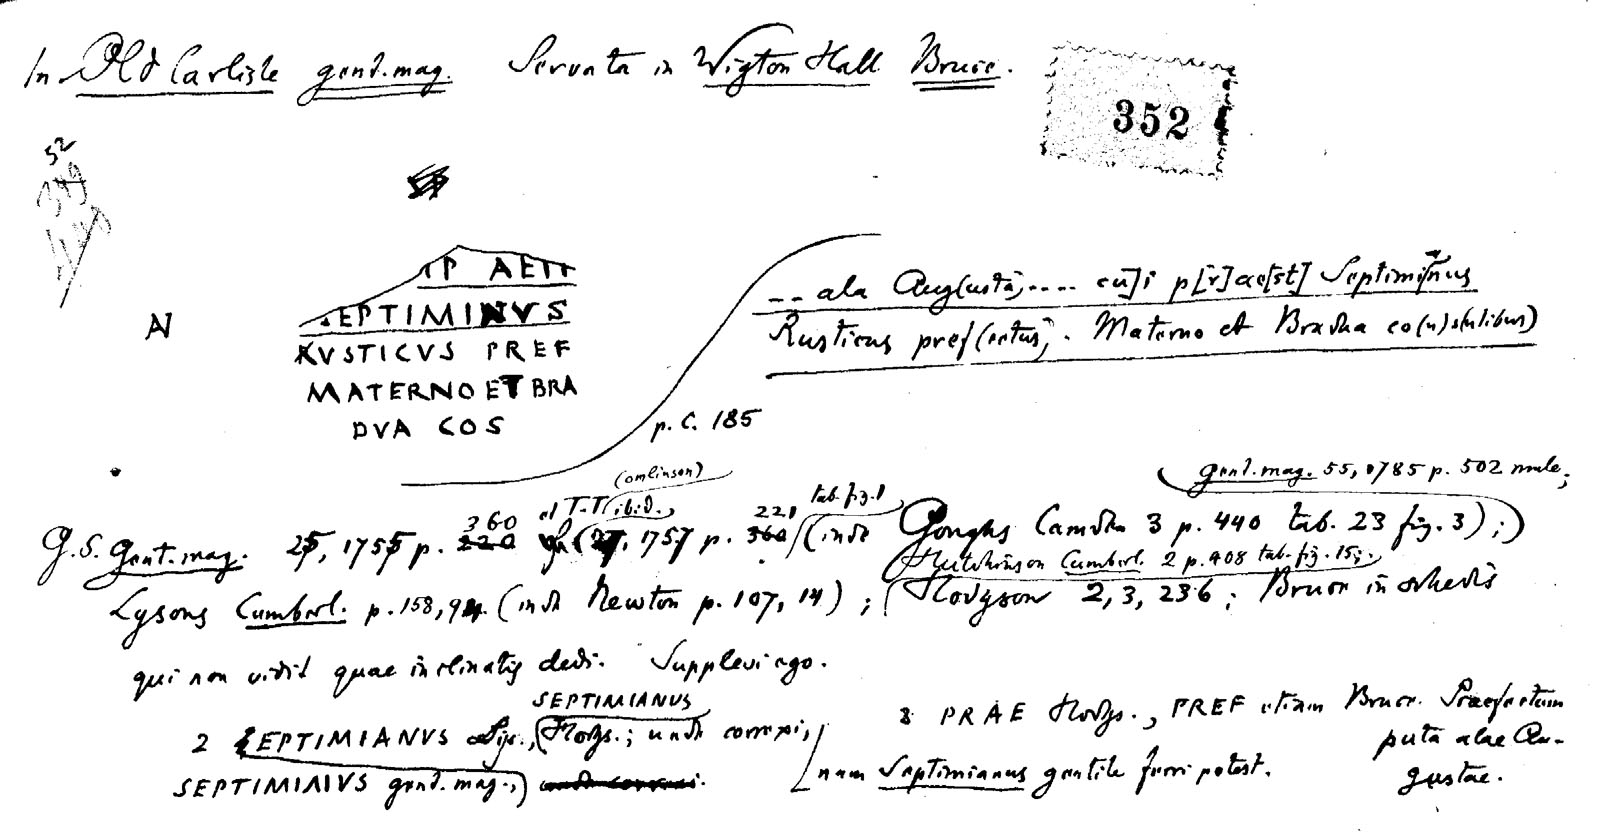 In Old Carlisle gent. mag. Servata in Wigton Hall Bruce.
352
52
N
IP AETI
SEPTIMINVS
RVSTICVS PREF
MATERNO ET BRA
DVA COS
-- ala Aug(usta) .... cu]i p[r]ae[st] Septimi[a]nus
Rusticus pref(ectus). Materno et Bradua co(n)s(ulibus)
p. C. 185
(omlinson)
gent. mag. 55, 1785 p. 502 male;
et T-T( ibid. 221 tab. fig. 1
360
G.S. Gent. mag. 25, 1755 p. 220 1757 p. 360 (inde Goughs Camden 3 p. 440 tab. 23 fig. 3);)
Hutchinson Cumberl. 2 p. 408 tab. fig. 15;
Lysons Cumberl. p. 158, 94. (inde Newton p. 107, 14); (Hodgson 2, 3, 236; Bruce in schedis
qui non vidit quae inclinatis dedi. Supplevi ego.
SEPTIMIANUS
2 SEPTIMIANVS Lys., (Hodgs.; unde correxi,
SEPTIMINVS gent. mag.,) unde correxi.
nam Septimianus gentile fueri potest.
3 PRAE Hodgs., PREF etiam Bruce. Praefectum
puta alae Au-
gustae.